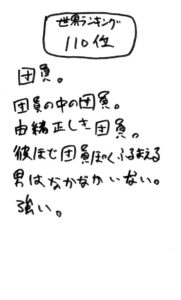 世界ランキング
110位
団員。
団員の中の団員。
由緒正しき団員。
彼ほど団員ぽくふるまえる
男はなかなかいない。
強い。